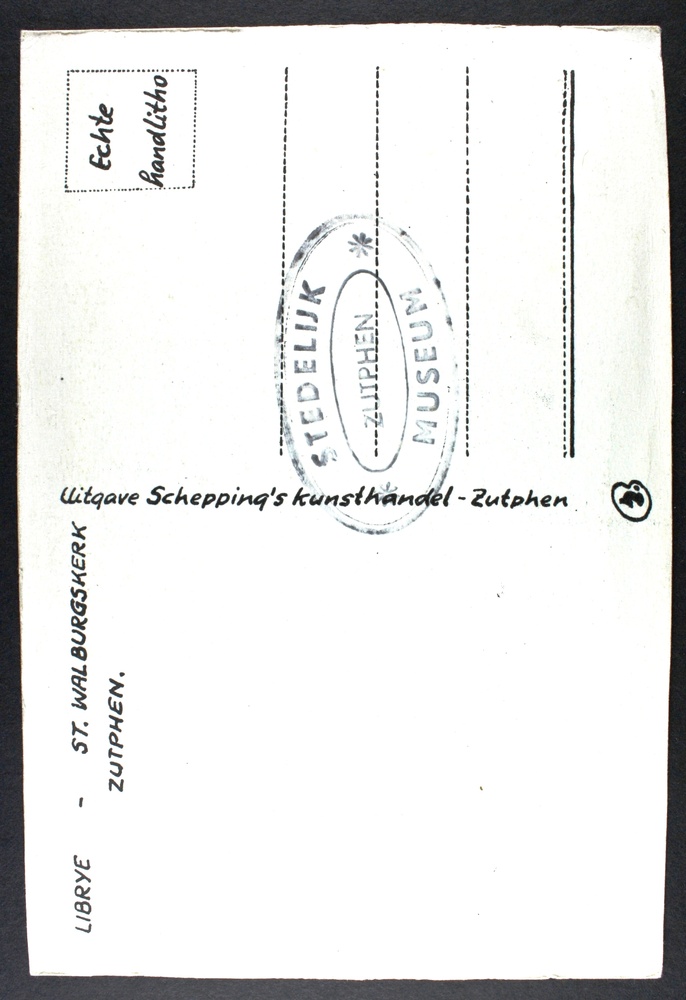 LIBRYE - ST. WALBURGSKERK
ZUTPHEN.
Uitgave Schepping's kunsthandel - Zutphen
Echte
handlitho
STEDELIJK
ZUTPHEN
MUSEUM